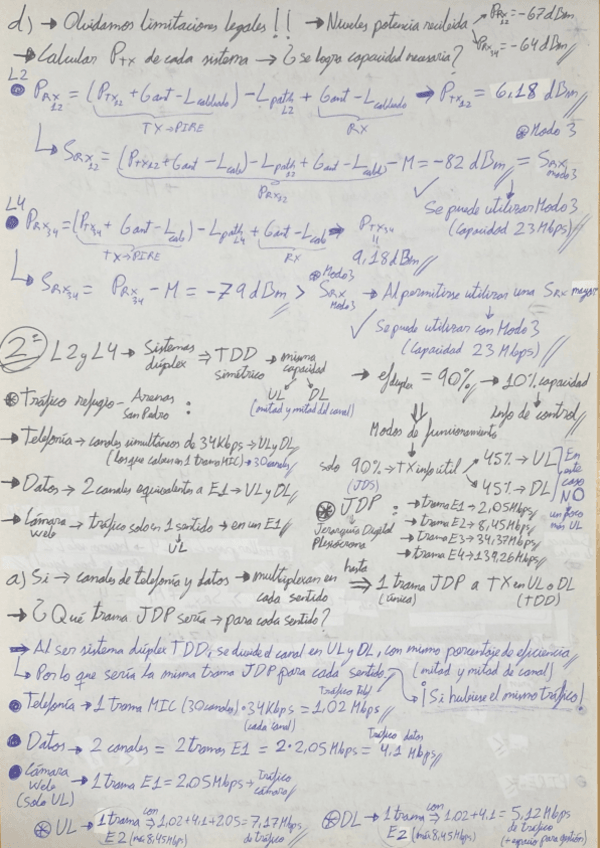 d) → Olvidamos limitaciones legales!! → Niveles potencia recibida → PRX12 = -67 dBm
→ PRX34 = -64 dBm
→ Calcular PTX de cada sistema → ¿se logra capacidad necesaria?
L2
● PRX12 = (PTX12 + Gant - Lcableado) - LpathL2 + Gant - Lcableado → PTX12 = 6,18 dBm
TX → PIRE
RX
@Modo 3
↳ SRX12 = (PTX12 + Gant - Lcab) - Lpath12 + Gant - Lcab - M = -82 dBm = SRX modo3
PRX12
✓ Se puede utilizar Modo 3
(Capacidad 23 Mbps)
L4
● PRX34 = (PTX34 + Gant - Lcab) - LpathL4 + Gant - Lcab → PTX34
TX → PIRE
RX
=
9,18 dBm
@Modo3
↳ SRX34 = PRX34 - M = -79 dBm > SRX Modo3 → Al permitirse utilizar una SRX mayor
✓ Se puede utilizar con Modo 3
(Capacidad 23 Mbps)
2= L2 y L4 → Sistemas dúplex ⇒ TDD simétrico → misma capacidad
UL DL
(mitad y mitad del canal)
→ efduplex = 90% → 10% capacidad
Info de control
⊛ Tráfico refugio - Arenas San Pedro:
Modos de funcionamiento
→ Telefonía → canales simultáneos de 34Kbps → UL y DL
(Los que caben en 1 trama MIC) → 30 canales
solo 90% → TX info útil → 45% → UL
(JDS)
→ 45% → DL
En este caso NO un poco más UL
→ Datos → 2 canales equivalentes a E1 → UL y DL
⊛ JDP:
Jerarquía Digital Plesiócrona
→ trama E1 → 2,05 Mbps
→ trama E2 → 8,45 Mbps
→ trama E3 → 34,37 Mbps
→ trama E4 → 139,26 Mbps
→ Cámara web → tráfico solo en 1 sentido → en un E1
UL
a) Si → canales de telefonía y datos → multiplexan en cada sentido hasta ⇒ 1 trama JDP a TX en UL o DL
(única) (TDD)
→ ¿Qué trama JDP sería → para cada sentido?
→ Al ser sistema dúplex TDD, se divide el canal en UL y DL, con mismo porcentaje de eficiencia
(mitad y mitad de canal)
↳ Por lo que sería la misma trama JDP para cada sentido → ¡Si hubiese el mismo tráfico!
Tráfico Telf
● Telefonía → 1 trama MIC (30 canales) · 34 Kbps = 1,02 Mbps
(cada canal)
Tráfico datos
● Datos → 2 canales = 2 tramas E1 = 2 · 2,05 Mbps = 4,1 Mbps
● Cámara Web → 1 trama E1 = 2,05 Mbps → tráfico cámara
(solo UL)
⊛ UL → 1 trama E2 (máx 8,45Mbps) con ⇒ 1,02+4,1+2,05 = 7,17 Mbps de tráfico
⊛ DL → 1 trama E2 (máx 8,45Mbps) con ⇒ 1,02+4,1 = 5,12 Mbps de tráfico
(+ espacio para gestión)